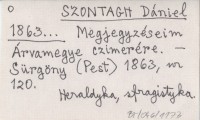 SZONTAGH Dániel
1863... Megjegyzéseim
Árvamegye czimerére. –
Sürgöny (Pest) 1863,
120.
Heraldyka, sfragistyka